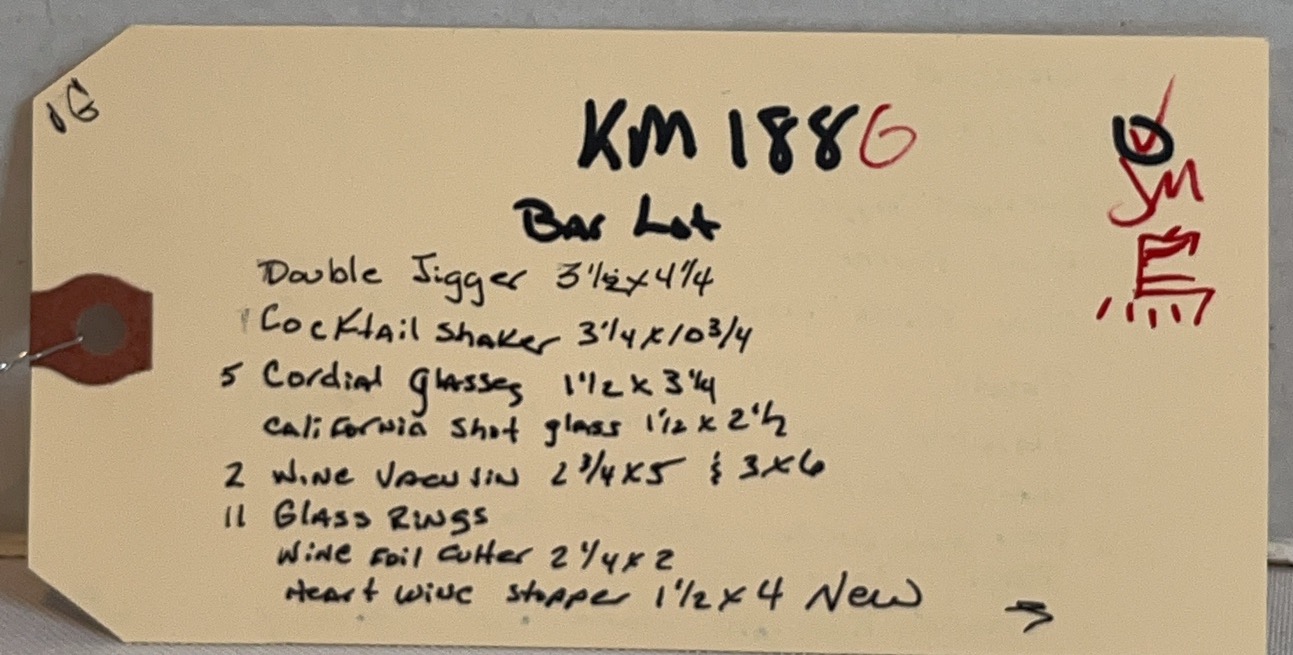 KM 188G
Bar Lot
Double Jigger 3 1/2 x 4 1/4
1 Cocktail Shaker 3 1/4 x 10 3/4
5 Cordial glasses 1 1/2 x 3 1/4
California Shot glass 1 1/2 x 2 1/2
2 Wine 2 3/4 x 5 & 3 x 6
11 Glass Rings
Wine Foil Cutter 2 1/4 x 2
Heart Wine Stopper 1 1/2 x 4 New →
JM